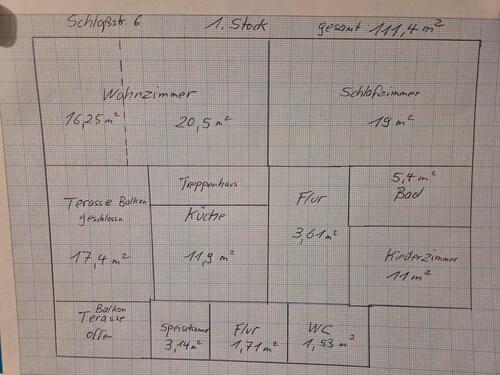 Schloßstr. 6 1. Stock gesamt: 111,4 m²
Wohnzimmer
16,25 m² 20,5 m²
Schlafzimmer
19 m²
Terasse Balkon
geschlossen
17,4 m²
Treppenhaus
Küche
11,9 m²
Flur
3,61 m²
5,4 m²
Bad
Kinderzimmer
11 m²
Balkon
Terasse
offen
Speisekamer
3,14 m²
Flur
1,71 m²
WC
1,53 m²